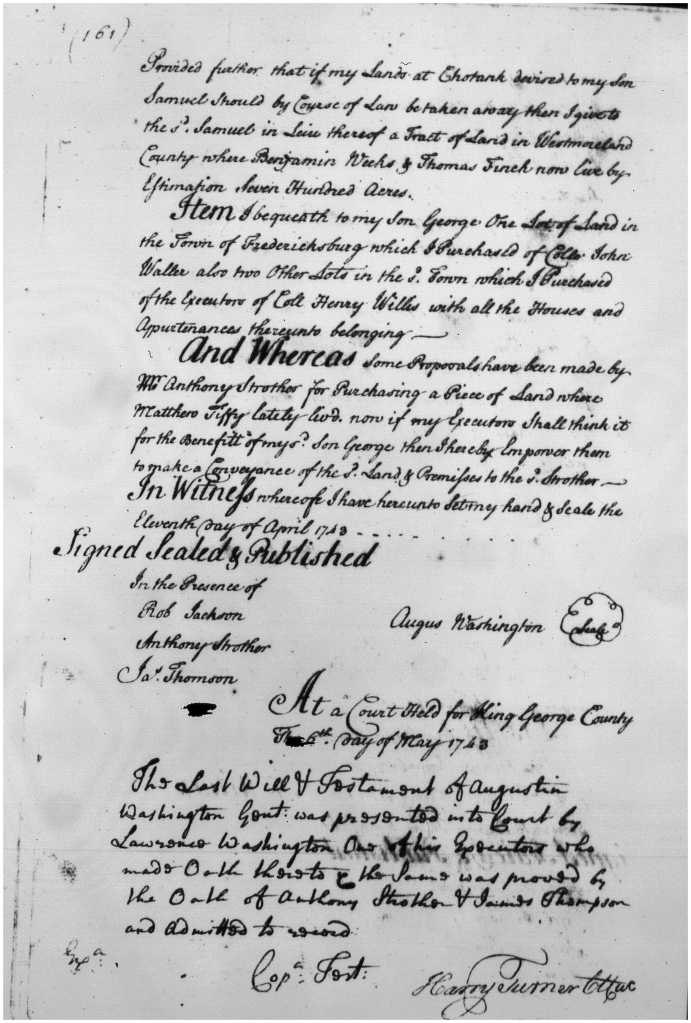 (161)
Provided further that if my Lands at Chotank devised to my Son
Samuel Should by Course of Law be taken away then I give to
the sd. Samuel in Leiu thereof a Tract of Land in Westmoreland
County where Benjamin Weeks & Thomas Finch now live by
Estimation Seven Hundred Acres.
Item I bequeath to my Son George One Lot of Land in
the Town of Fredericksburg which I Purchased of Collo. John
Waller also two Other Lots in the sd. Town which I Purchased
of the Executors of Coll Henry Willis with all the Houses and
Appurtenances thereunto belonging
And Whereas Some Proposals have been made by
Mr. Anthony Strother for Purchasing a Piece of Land where
Matthew Tiffy lately liv'd. now if my Executors Shall think it
for the Benefitt of my sd. Son George then I hereby Impower them
to make a Conveyance of the sd. Land & Premisses to the sd. Strother
In Witness whereofe I have hereunto Set my hand & Seale the
Eleventh Day of April 1743
Signed Sealed & Published
In the Presence of
Rob Jackson
Augus Washington Seale
Anthony Strother
Jas. Thomson
At a Court Held for King George County
The 6th. Day of May 1743
The Last Will & Testament of Augustin
Washington Gent: was presented into Court by
Lawrence Washington One of his Executors who
made Oath thereto & the Same was proved by
the Oath of Anthony Strother & James Thompson
and Admitted to record
Exa.
Copa. Test:
Harry Turner